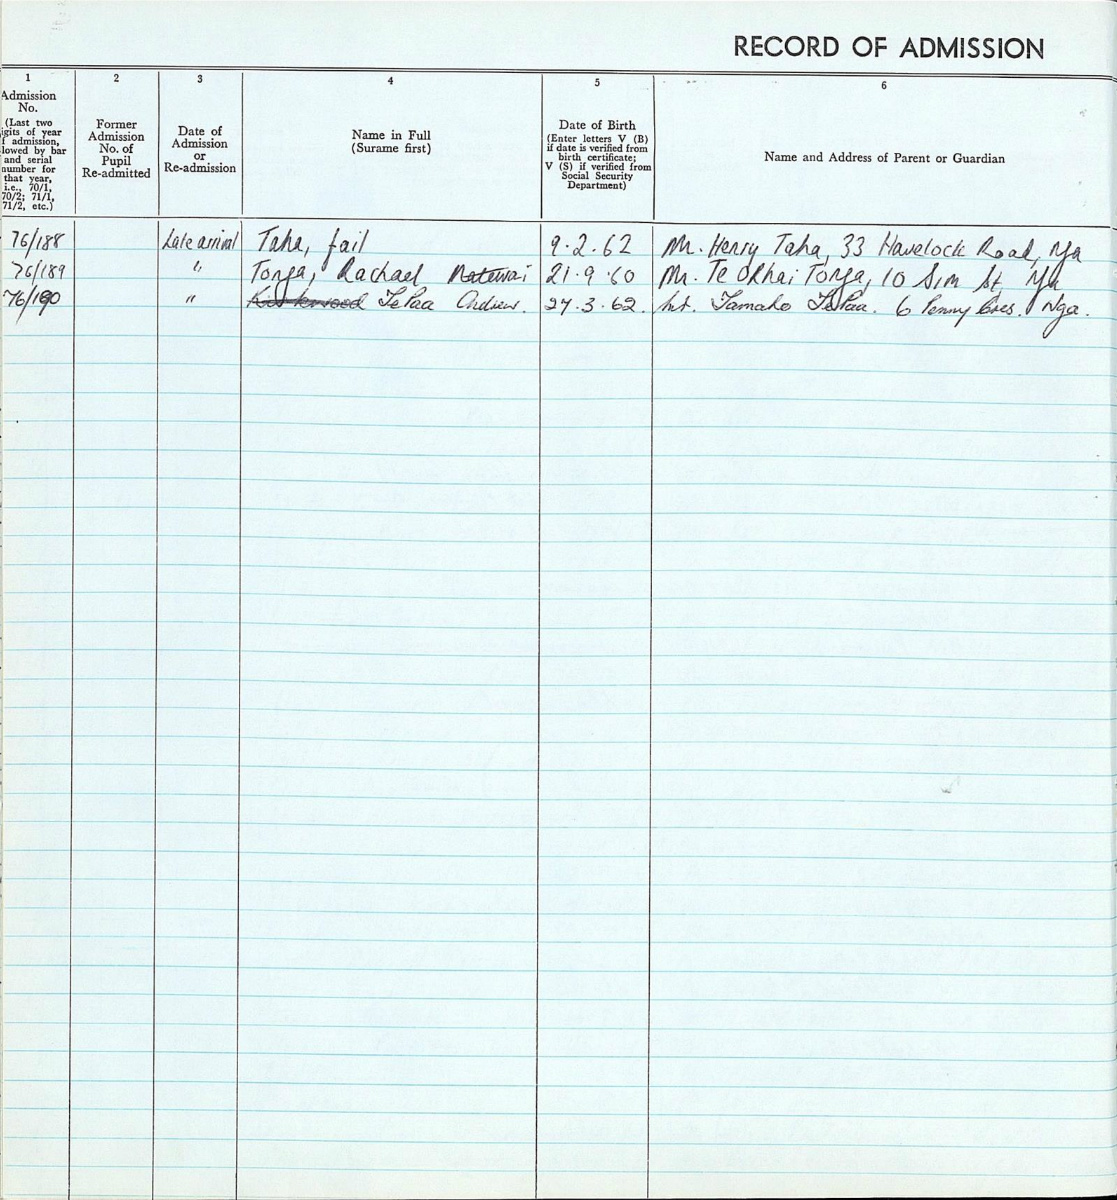 RECORD OF ADMISSION
1 2 3 4 5 6
Admission
No.
(Last two
igits of year
f admission,
lowed by bar
and serial
number for
that year,
i.e., 70/1,
70/2; 71/1,
71/2, etc.)
Former
Admission
No. of
Pupil
Re-admitted
Date of
Admission
or
Re-admission
Name in Full
(Surame first)
Date of Birth
(Enter letters V (B)
if date is verified from
birth certificate;
V (S) if verified from
Social Security
Department)
Name and Address of Parent or Guardian
76/188 Late arrival Taha, Gail 9.2.62 Mr. Henry Taha, 33 Havelock Road, Nga
76/189 " Tonga, Rachael 21.9.60 Mr. Te Tonga, 10 Sim St. Nga
76/190 " TePaa Andrew. 27.3.62. Mr. Tamaho TePaa. 6 Penny Cres. Nga.